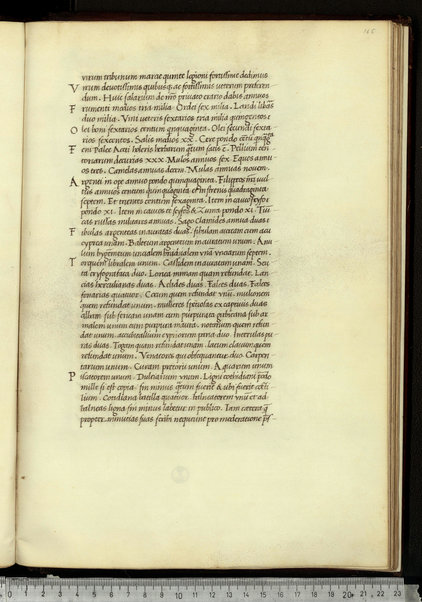 166
virum tribunum martie quinte legioni fortissime dedimus
Virum devotissimis quibusque ac fortissimis veteribus preferen
dum. Huic salarium de nr̄o privato erario dabis annuos
Frumenti modios tria milia. Ordei sex milia. Laridi libras
duo milia. Vini veteris sextarios tria milia quingentos
Olei boni sextarios centum quinquaginta. Olei secundi sexta
rios sexcentos. Salis modios xx. Cere pondo centum quinquaginta
Feni Palee Aceti holeris herbarum quantum satis est. Pellium ten
toriarum decurias xxx. Mulos annuos sex. Equos annu
os tres. Camelas annuas decem. Mulas annuas novem.
Argenti in ope annuo pondo quinquaginta. Filippeos nr̄i vul
tus annuos centum quinquaginta et in strenis quadraginta
septem. Et trientes centum sexaginta. Item in cauco
pondo xi. Item in caucos et scyfos & Zuma pondo xi. Tuni
cas russulas militares annuas. Sago clamides annua duas
Fibulas argenteas inauratas duas. fibulam auream cum acu
cypria unam. Balteum argenteum inauratum unum. Anu
lum bigemmeum unum unciarum septem.
Torquem libralem unum. Cassidem inauratam unam. Scu
ta crysografata duo. Loricam unam quam refundat. Lan
ceas herculianas duas. Aclides duas. Falces duas. Falces
fenarias quatuor. Cocum quem refundat unum. mulionem
quem refundat unum. mulieres speciosas ex captivis duas
albam sub sericam unam cum purpura girbitana sub ar
malem unum cum purpura maura. notarium quem refun
dat unum. accubitalium cypriorum paria duo. Interulas pu
ras duas. Togam quam refundat unam. latum clavum quem
refundat unum. Venatores qui obsequantur duo. Carpen
tarium unum. Curam pretorii unum. Aquarium unum.
Piscatorem unum. Dulciarium unum. Ligni cotidiani pondo
mille si est copia. sin minus quantum fuerit & ubi fuerit cocti
lium. Cotidiana batilla quatuor. balneatorem unum et ad
balneas ligna sin minus lavetur in publico. Iam cetera que
propter minutias suas scribi nequeunt pro moderatione